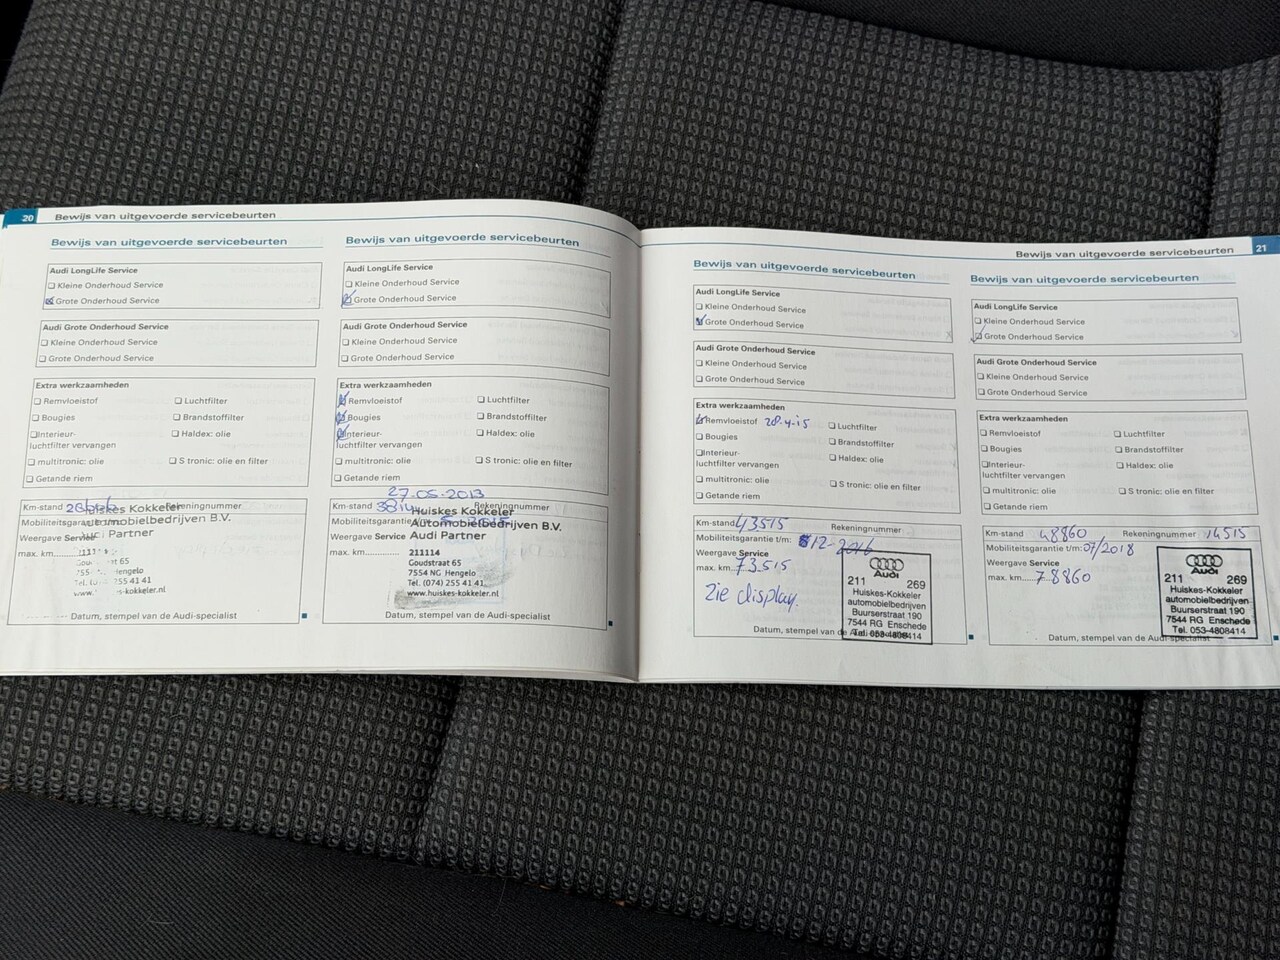 20 Bewijs van uitgevoerde servicebeurten
Bewijs van uitgevoerde servicebeurten
Audi LongLife Service
Kleine Onderhoud Service
Grote Onderhoud Service
Audi Grote Onderhoud Service
Kleine Onderhoud Service
Grote Onderhoud Service
Extra werkzaamheden
Remvloeistof Luchtfilter
Bougies Brandstoffilter
Interieur- Haldex: olie
luchtfilter vervangen
multitronic: olie S tronic: olie en filter
Getande riem
Km-stand Rekeningnummer
Huiskes Kokkeler
Mobiliteitsgarantie t/m:
Automobielbedrijven B.V.
Weergave Service
Audi Partner
max. km
65
Hengelo
255 41 41
-kokkeler.nl
Datum, stempel van de Audi-specialist
Bewijs van uitgevoerde servicebeurten
Audi LongLife Service
Kleine Onderhoud Service
Grote Onderhoud Service
Audi Grote Onderhoud Service
Kleine Onderhoud Service
Grote Onderhoud Service
Extra werkzaamheden
Remvloeistof Luchtfilter
Bougies Brandstoffilter
Interieur- Haldex: olie
luchtfilter vervangen
multitronic: olie S tronic: olie en filter
Getande riem
27-05-2013
Km-stand Rekeningnummer
Huiskes Kokkeler
Mobiliteitsgarantie
Automobielbedrijven B.V.
Weergave Service
Audi Partner
max. km
211114
Goudstraat 65
7554 NG Hengelo
Tel. (074) 255 41 41
www.huiskes-kokkeler.nl
Datum, stempel van de Audi-specialist
Bewijs van uitgevoerde servicebeurten 21
Bewijs van uitgevoerde servicebeurten
Audi LongLife Service
Kleine Onderhoud Service
Grote Onderhoud Service
Audi Grote Onderhoud Service
Kleine Onderhoud Service
Grote Onderhoud Service
Extra werkzaamheden
Remvloeistof 28-4-15 Luchtfilter
Bougies Brandstoffilter
Interieur- Haldex: olie
luchtfilter vervangen
multitronic: olie S tronic: olie en filter
Getande riem
Km-stand 43515 Rekeningnummer
Mobiliteitsgarantie t/m: 12-2016
Weergave Service
max. km 73.515
Zie display.
Audi
211 269
Huiskes-Kokkeler
automobielbedrijven
Buurserstraat 190
7544 RG Enschede
Tel. 053-4808414
Datum, stempel van de Audi-specialist
Bewijs van uitgevoerde servicebeurten
Audi LongLife Service
Kleine Onderhoud Service
Grote Onderhoud Service
Audi Grote Onderhoud Service
Kleine Onderhoud Service
Grote Onderhoud Service
Extra werkzaamheden
Remvloeistof Luchtfilter
Bougies Brandstoffilter
Interieur- Haldex: olie
luchtfilter vervangen
multitronic: olie S tronic: olie en filter
Getande riem
Km-stand 48860 Rekeningnummer 14515
Mobiliteitsgarantie t/m: 07/2018
Weergave Service
max. km 78860
Audi
211 269
Huiskes-Kokkeler
automobielbedrijven
Buurserstraat 190
7544 RG Enschede
Tel. 053-4808414
Datum, stempel van de Audi-specialist